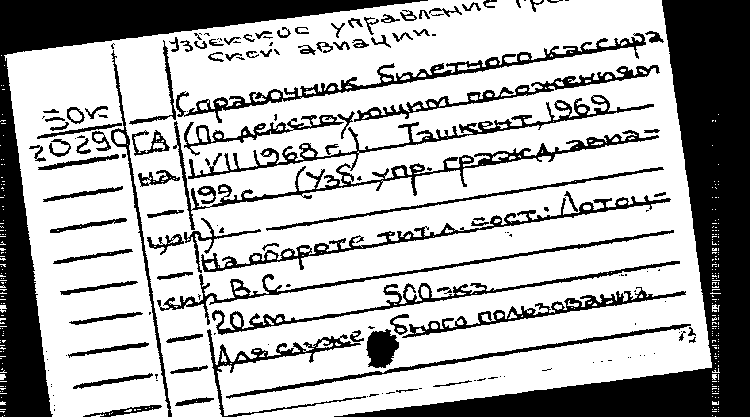 Узбекское управление граж
ской авиации.
30к
Справочник билетного кассира
20290 ГА. (По действующим положениям
на 1.VII 1968 г.). Ташкент, 1969.
192.с. (Узб. упр. гражд. авиа=
ции).
На обороте тит. л. сост.: Лотоц=
кий В.С.
20 см. 500 экз.
Для служебного пользования.